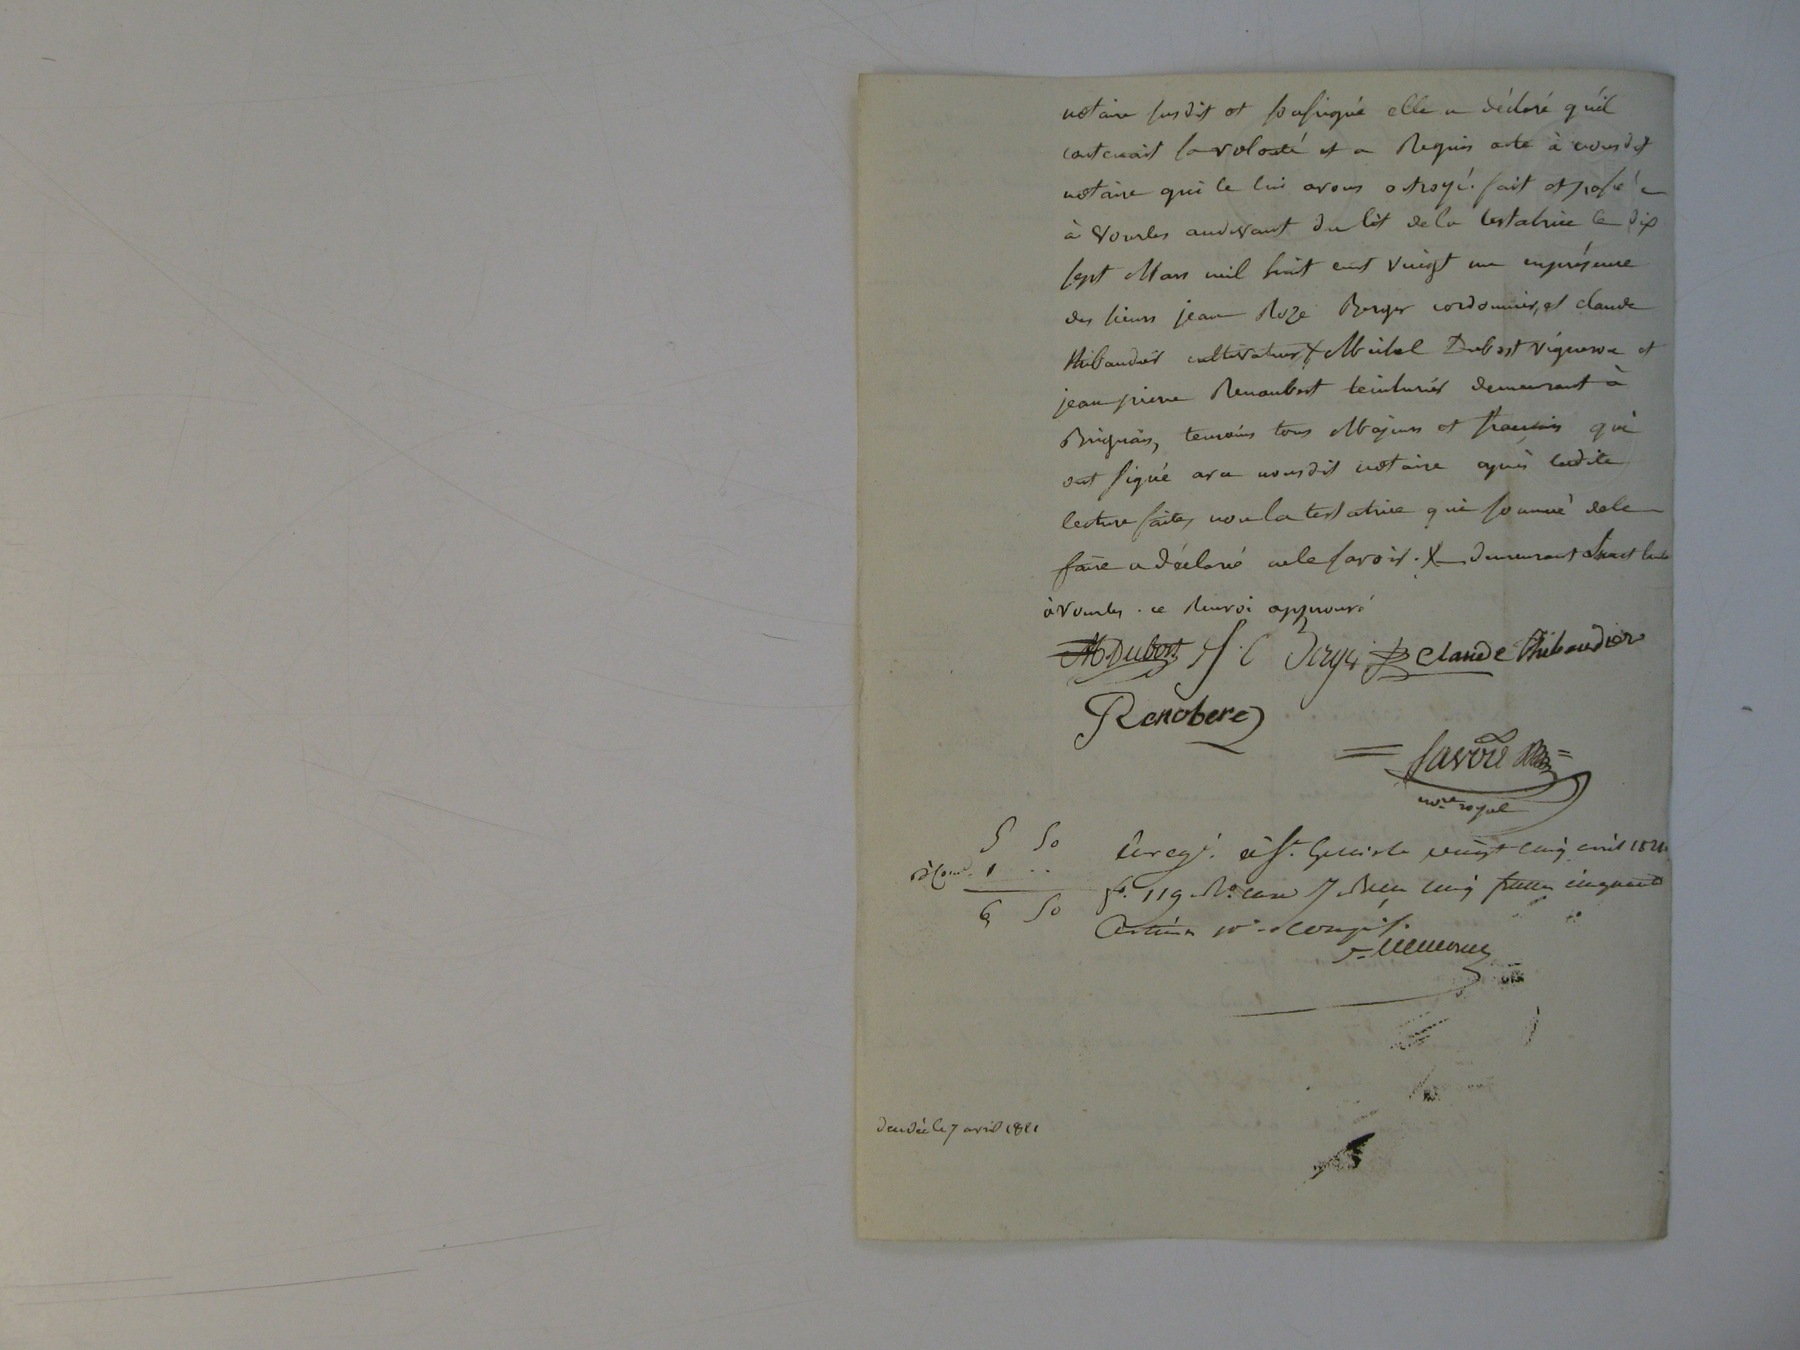 notaire susdit et soussigné elle a déclaré qu'il
contenait sa volonté et a Requis acte à nousdit
notaire qui le lui avons octroyé. fait et passé
à Vourles audevant du lit dela testatrice le dix
sept Mars mil huit cent vingt un enprésence
des sieurs jean Roze Berger cordonnier, et claude
thibaudier cultivateur X Michel Dubost vigneron et
jean pierre Renaubert teinturier demeurant à
Brignais, temoins tous Majeurs et francais qui
ont signé avec nousdit notaire après ladite
lecture faite, non la testatrice qui sommé dele
faire a déclaré nele savoir. X demeurant
à Vourles. ce Renvoi approuvé
M. Dubost Berger Claude Thibaudier
Renobere
Savoie
no.re royal
5 50
1 ..
6 50
Enregé. à St. Genis le vingt cinq avril 1821
fo. 119 Ro. case 7 Reçu cinq francs cinquante
Centimes
décédée le 7 avril 1821